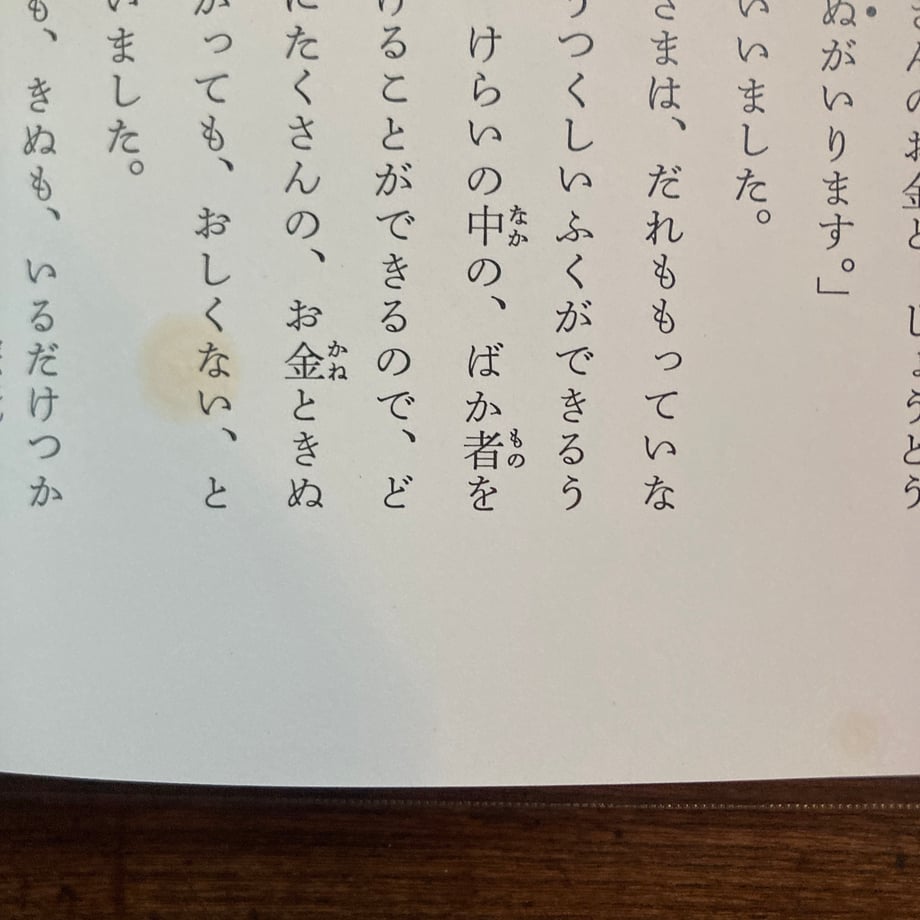 のお金と
ぬがいります。」
いいました。
さまは、だれももっていな
うつくしいふくができるう
なか
もの
けらいの中の、ばか者を
ることができるので、ど
かね
にたくさんの、お金ときぬ
かっても、おしくない、と
いました。
も、きぬも、いるだけつか